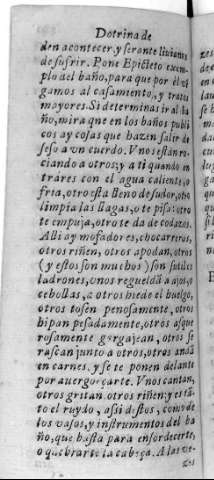 Dotrina de
den acontecer, y seronte livianos
de sufrir. Pone Epicteto exem-
plo del baño, para que por él
gamos al casamiento, y tratos
mayores. Si determinas ir al ba
ño, mira que en los baños publi
cos ay cosas que hazen salir de
seso a un cuerdo. Vnos están ro-
ciando a otros; y a ti quando en
trares con el agua caliente, o
fria, otro està lleno de sudor, otro
limpia las llagas, o te pisa: otro
te empuja, otro te da de codazos.
Alli ay mofadores, chocarreros,
otros riñen, otros apodan, otros
(y estos son muchos) son sutiles
ladrones, vnos regueldã a ajos, o
cebollas, a otros hiede el huelgo,
otros tosen penosamente, otros
hipan pesadamente, otros asque
rosamente gargajean, otros se
rascan junto a otros, otros andã
en carnes, y se te ponen delante
por avergonçarte. Vnos cantan,
otros gritan otros riñen; y es tã-
to el ruydo, assi destos, como de
los vasos, y instrumentos del ba
ño, que basta para ensordecerte,
o quebrarte la cabeça. A las ve-
zes